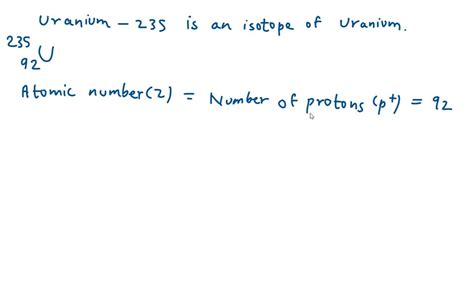 Uranium - 235 is an isotope of Uranium.
235
92 U
Atomic number(Z) = Number of protons (p+) = 92